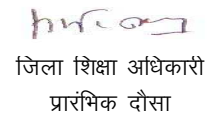 जिला शिक्षा अधिकारी
प्रारंभिक दौसा